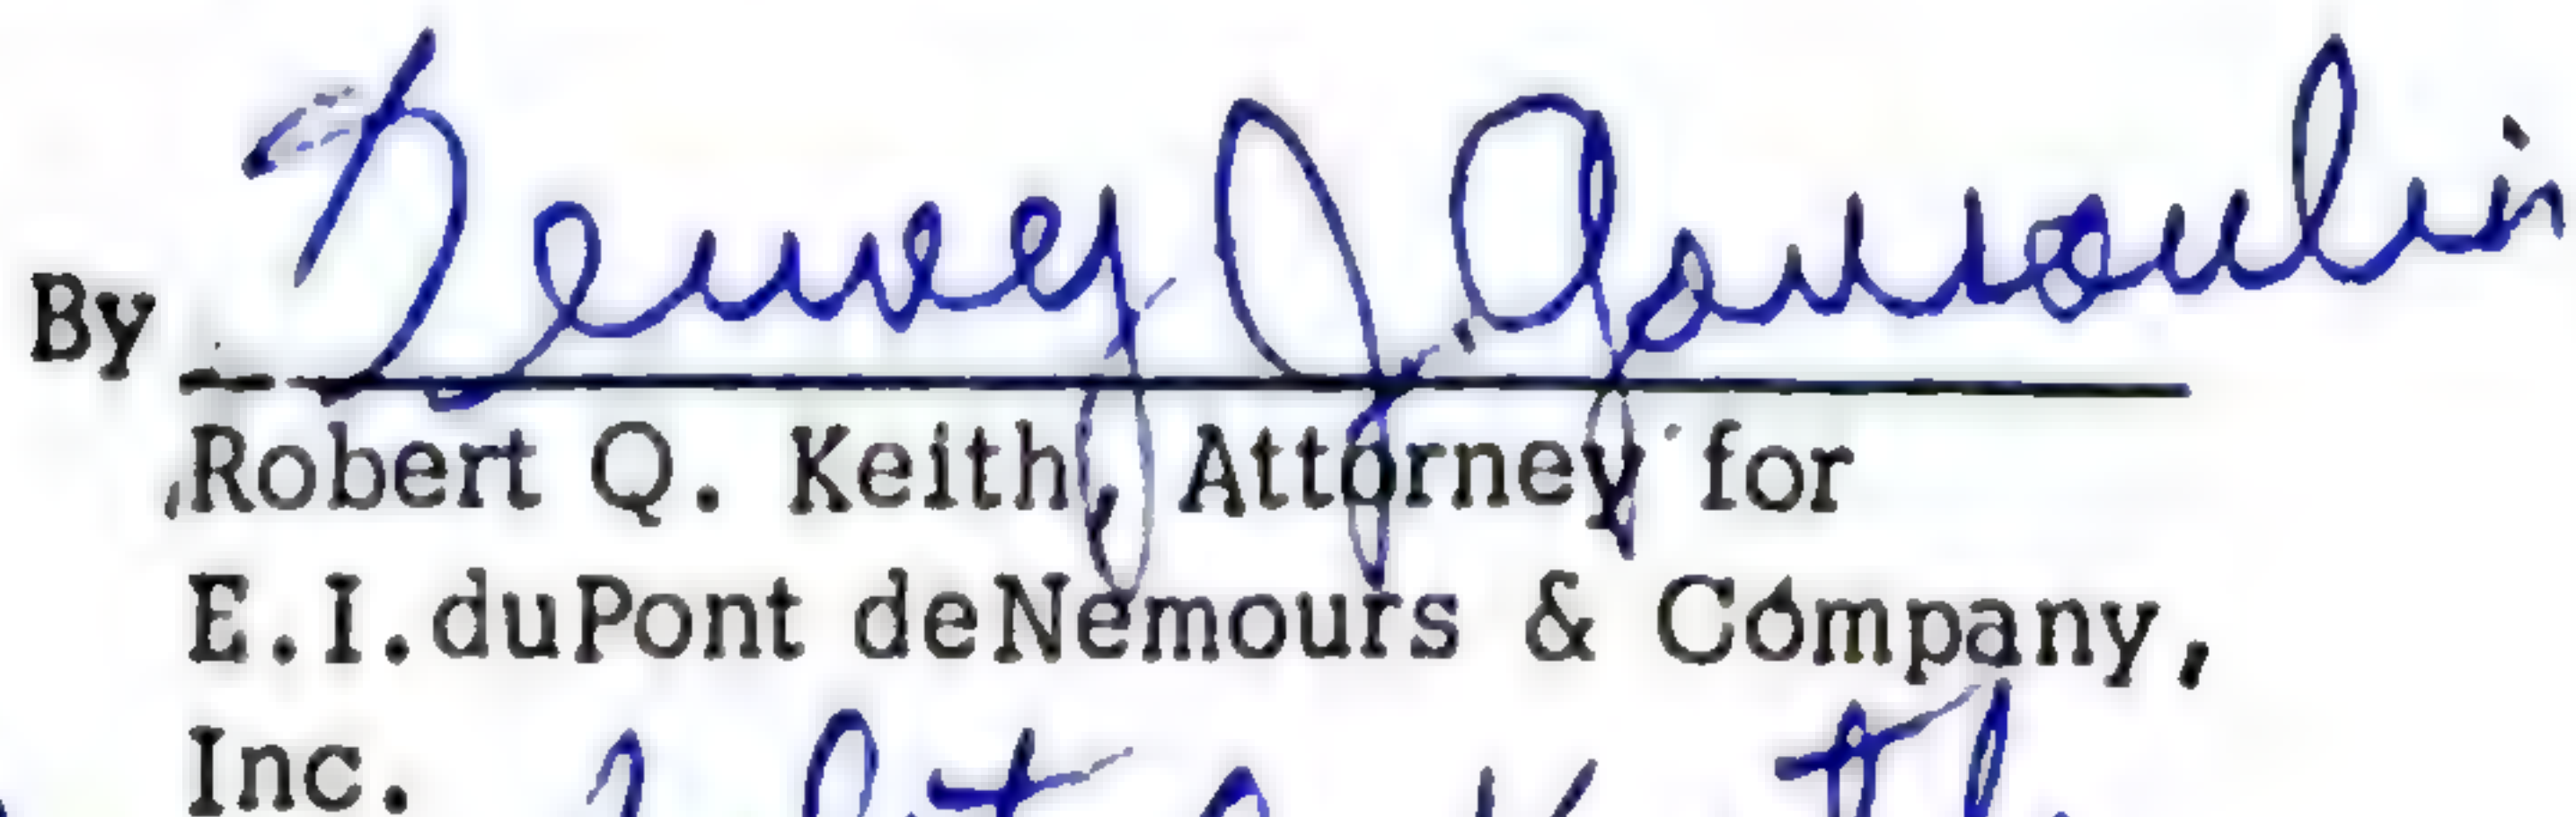 By Dewey J. Gonsoulin
Robert Q. Keith, Attorney for
E.I.duPont deNemours & Company,
Inc.